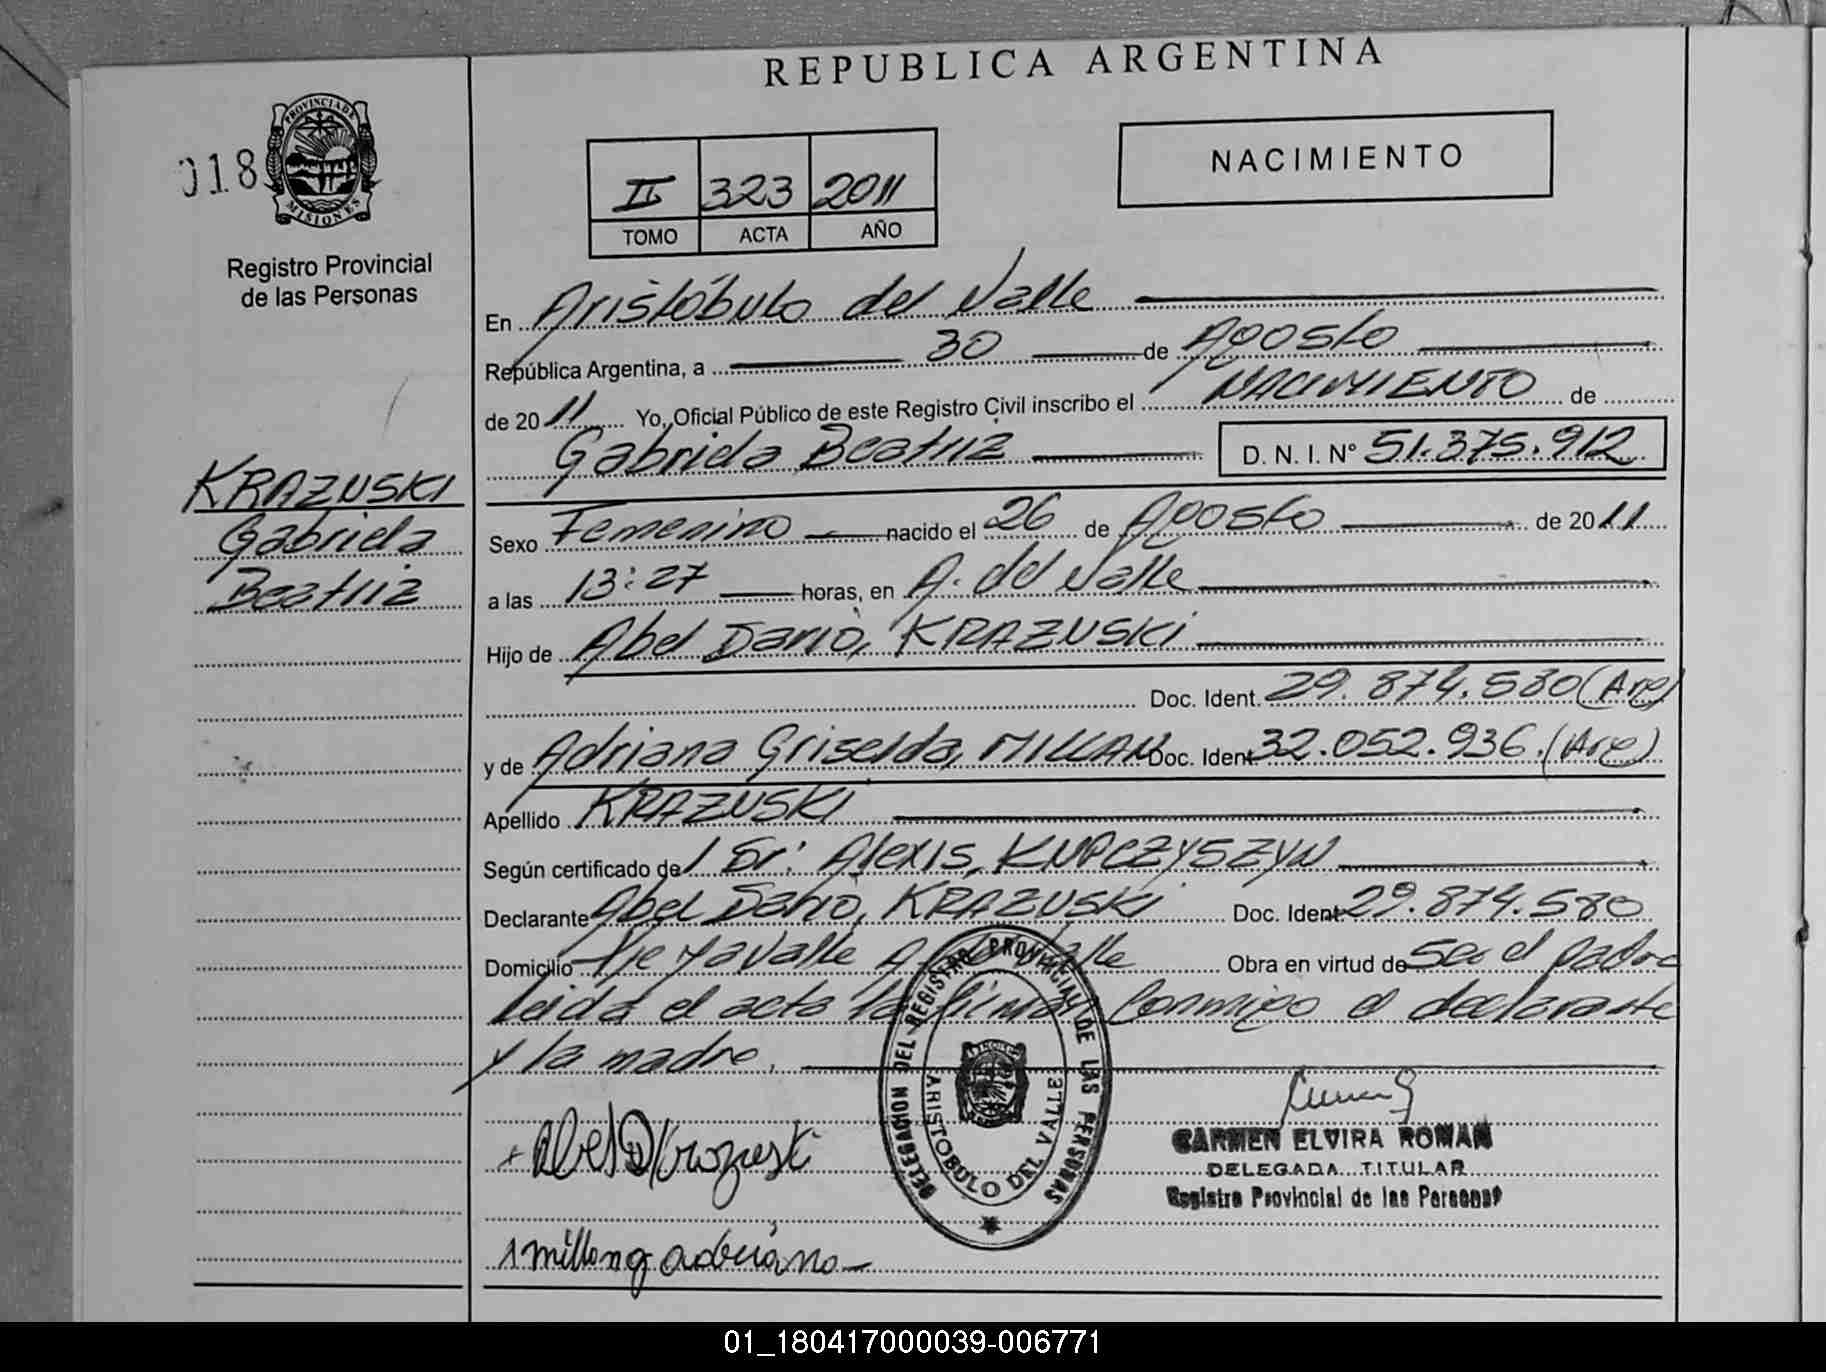 REPUBLICA ARGENTINA
018
PROVINCIA DE
MISIONES
Registro Provincial
de las Personas
II 323 2011
TOMO ACTA AÑO
NACIMIENTO
En Aristóbulo del Valle
República Argentina, a 30 de Agosto
de 2011 Yo, Oficial Público de este Registro Civil inscribo el NACIMIENTO de
Gabriela Beatriz D. N. I. Nº 51.375.912
KRAZUSKI
Gabriela
Beatriz
Sexo Femenino nacido el 26 de Agosto de 2011
a las 13:27 horas, en A. del Valle
Hijo de Abel Darío, KRAZUSKI
Doc. Ident. 29.874.580 (Arg)
y de Adriana Griselda, MILLAN Doc. Ident 32.052.936. (Arg)
Apellido KRAZUSKI
Según certificado de / Sr: Alexis, KUPCZYSZYN
Declarante Abel Darío, KRAZUSKI Doc. Ident 29.874.580
Domicilio Valle A. del Valle Obra en virtud de Ser el padre
leida el acta la firman Conmigo el declarante
y la madre.
DELEGACION DEL REGISTRO PROVINCIAL DE LAS PERSONAS
ARISTOBULO DEL VALLE
Abel D Krazuski
CARMEN ELVIRA ROMAN
DELEGADA TITULAR
Registro Provincial de las Personas
millan g adriana
01_180417000039-006771